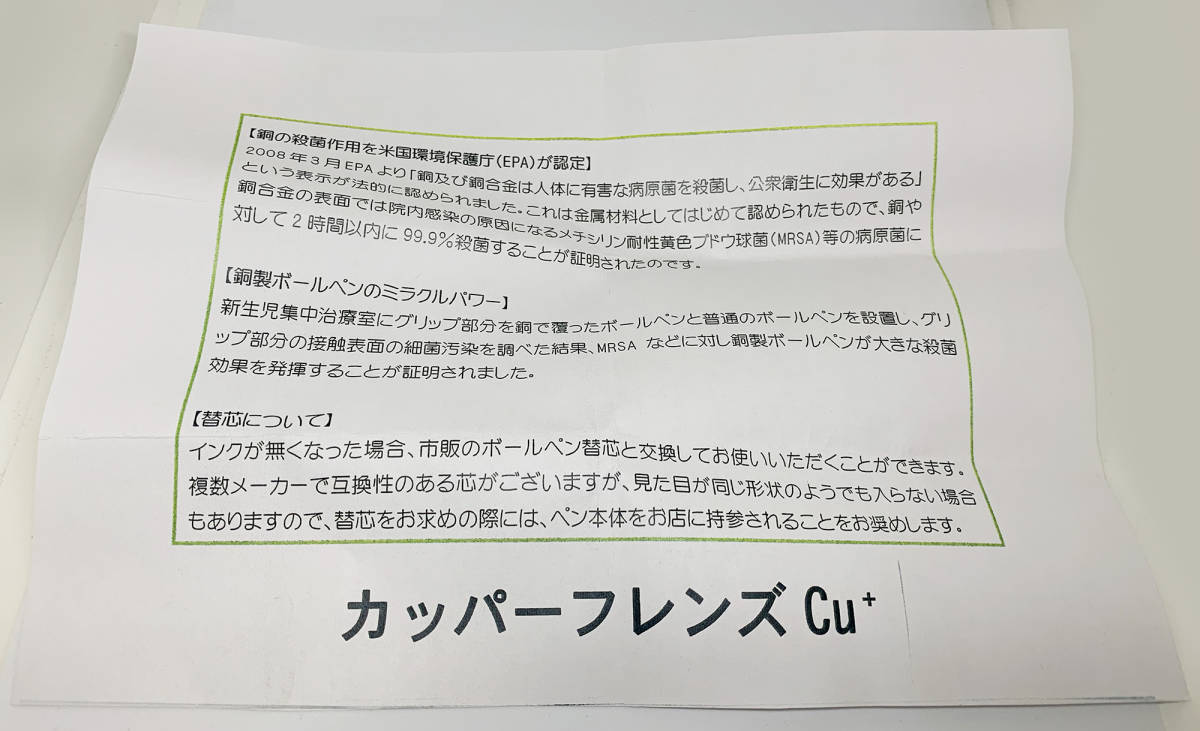 【銅の殺菌作用を米国環境保護庁(EPA)が認定】
2008年3月EPAより「銅及び銅合金は人体に有害な病原菌を殺菌し、公衆衛生に効果がある」
という表示が法的に認められました。これは金属材料としてはじめて認められたもので、銅や
銅合金の表面では院内感染の原因になるメチシリン耐性黄色ブドウ球菌(MRSA)等の病原菌に
対して2時間以内に99.9%殺菌することが証明されたのです。
【銅製ボールペンのミラクルパワー】
新生児集中治療室にグリップ部分を銅で覆ったボールペンと普通のボールペンを設置し、グリ
ップ部分の接触表面の細菌汚染を調べた結果、MRSAなどに対し銅製ボールペンが大きな殺菌
効果を発揮することが証明されました。
【替芯について】
インクが無くなった場合、市販のボールペン替芯と交換してお使いいただくことができます。
複数メーカーで互換性のある芯がございますが、見た目が同じ形状のようでも入らない場合
もありますので、替芯をお求めの際には、ペン本体をお店に持参されることをお奨めします。
カッパーフレンズCu⁺